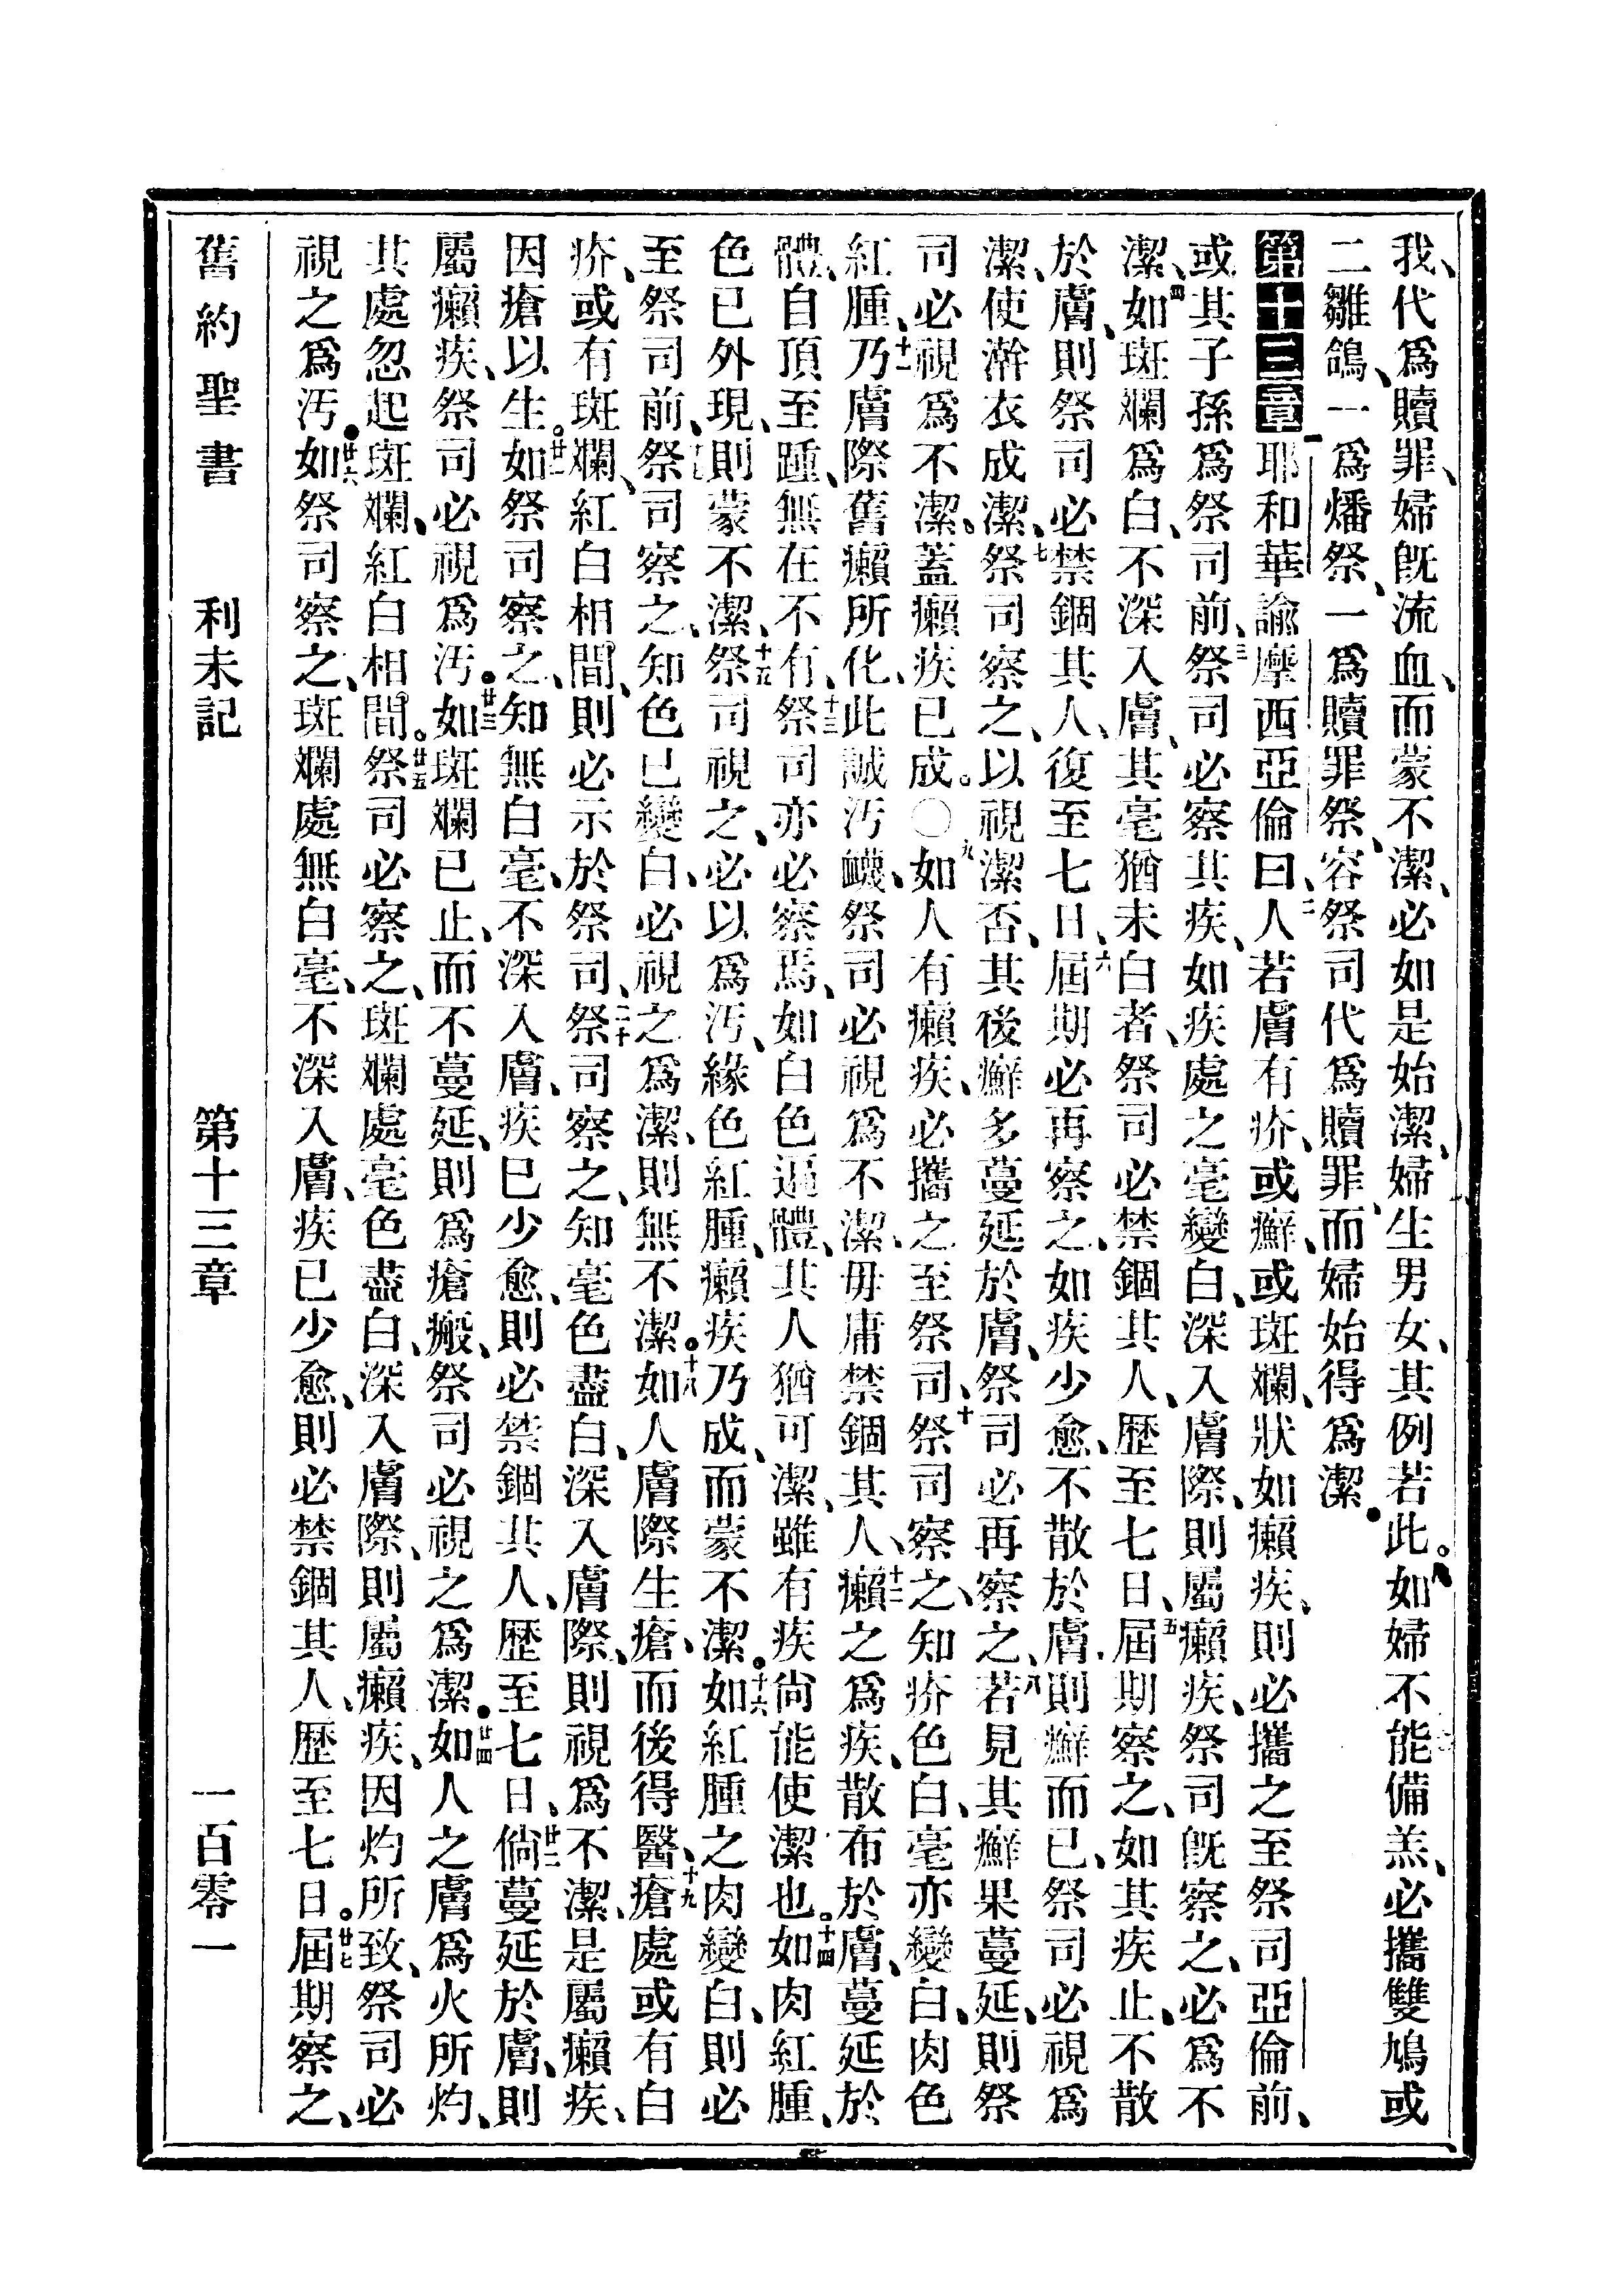 我、代爲贖罪、婦旣流血、而蒙不潔、必如是始潔、婦生男女、其例若此。八如婦不能備羔、必攜雙鳩或
二雛鴿、一爲燔祭、一爲贖罪祭、容祭司代爲贖罪、而婦始得爲潔。
第十三章一耶和華諭摩西亞倫曰、二人若膚有疥、或癬、或斑斕、狀如癩疾、則必攜之至祭司亞倫前、
或其子孫爲祭司前、三祭司必察其疾、如疾處之毫變白、深入膚際、則屬癩疾、祭司旣察之、必爲不
潔、四如斑斕爲白、不深入膚、其毫猶未白者、祭司必禁錮其人、歷至七日、五屆期察之、如其疾止、不散
於膚、則祭司必禁錮其人、復至七日、六屆期必再察之、如疾少愈、不散於膚、則癬而已、祭司必視爲
潔、使澣衣成潔、七祭司察之、以視潔否、其後癬多蔓延於膚、祭司必再察之、八若見其癬果蔓延、則祭
司必視爲不潔。蓋癩疾已成。○九如人有癩疾、必攜之至祭司、十祭司察之、知疥色白、毫亦變白、肉色
紅腫、十一乃膚際舊癩所化、此誠汚衊、祭司必視爲不潔、毋庸禁錮其人、十二癩之爲疾、散布於膚、蔓延於
體、自頂至踵、無在不有、十三祭司亦必察焉、如白色遍體、其人猶可潔、雖有疾尙能使潔也。十四如肉紅腫、
色已外現、則蒙不潔、十五祭司視之、必以爲汚、緣色紅腫、癩疾乃成、而蒙不潔。十六如紅腫之肉變白、則必
至祭司前、十七祭司察之、知色已變白、必視之爲潔、則無不潔。十八如人膚際生瘡、而後得醫、十九瘡處或有白
疥、或有斑斕、紅白相間、則必示於祭司、二十祭司察之、知毫色盡白、深入膚際、則視爲不潔、是屬癩疾、
因瘡以生。廿一如祭司察之、知無白毫、不深入膚、疾已少愈、則必禁錮其人、歷至七日、廿二倘蔓延於膚、則
屬癩疾、祭司必視爲汚。廿三如斑斕已止、而不蔓延、則爲瘡瘢、祭司必視之爲潔。廿四如人之膚爲火所灼、
其處忽起斑斕、紅白相間。廿五祭司必察之、斑斕處毫色盡白、深入膚際、則屬癩疾、因灼所致、祭司必
視之爲汚。廿六如祭司察之、斑斕處無白毫、不深入膚、疾已少愈、則必禁錮其人、歷至七日。廿七屆期察之、
舊約聖書 利未記 第十三章 一百零一